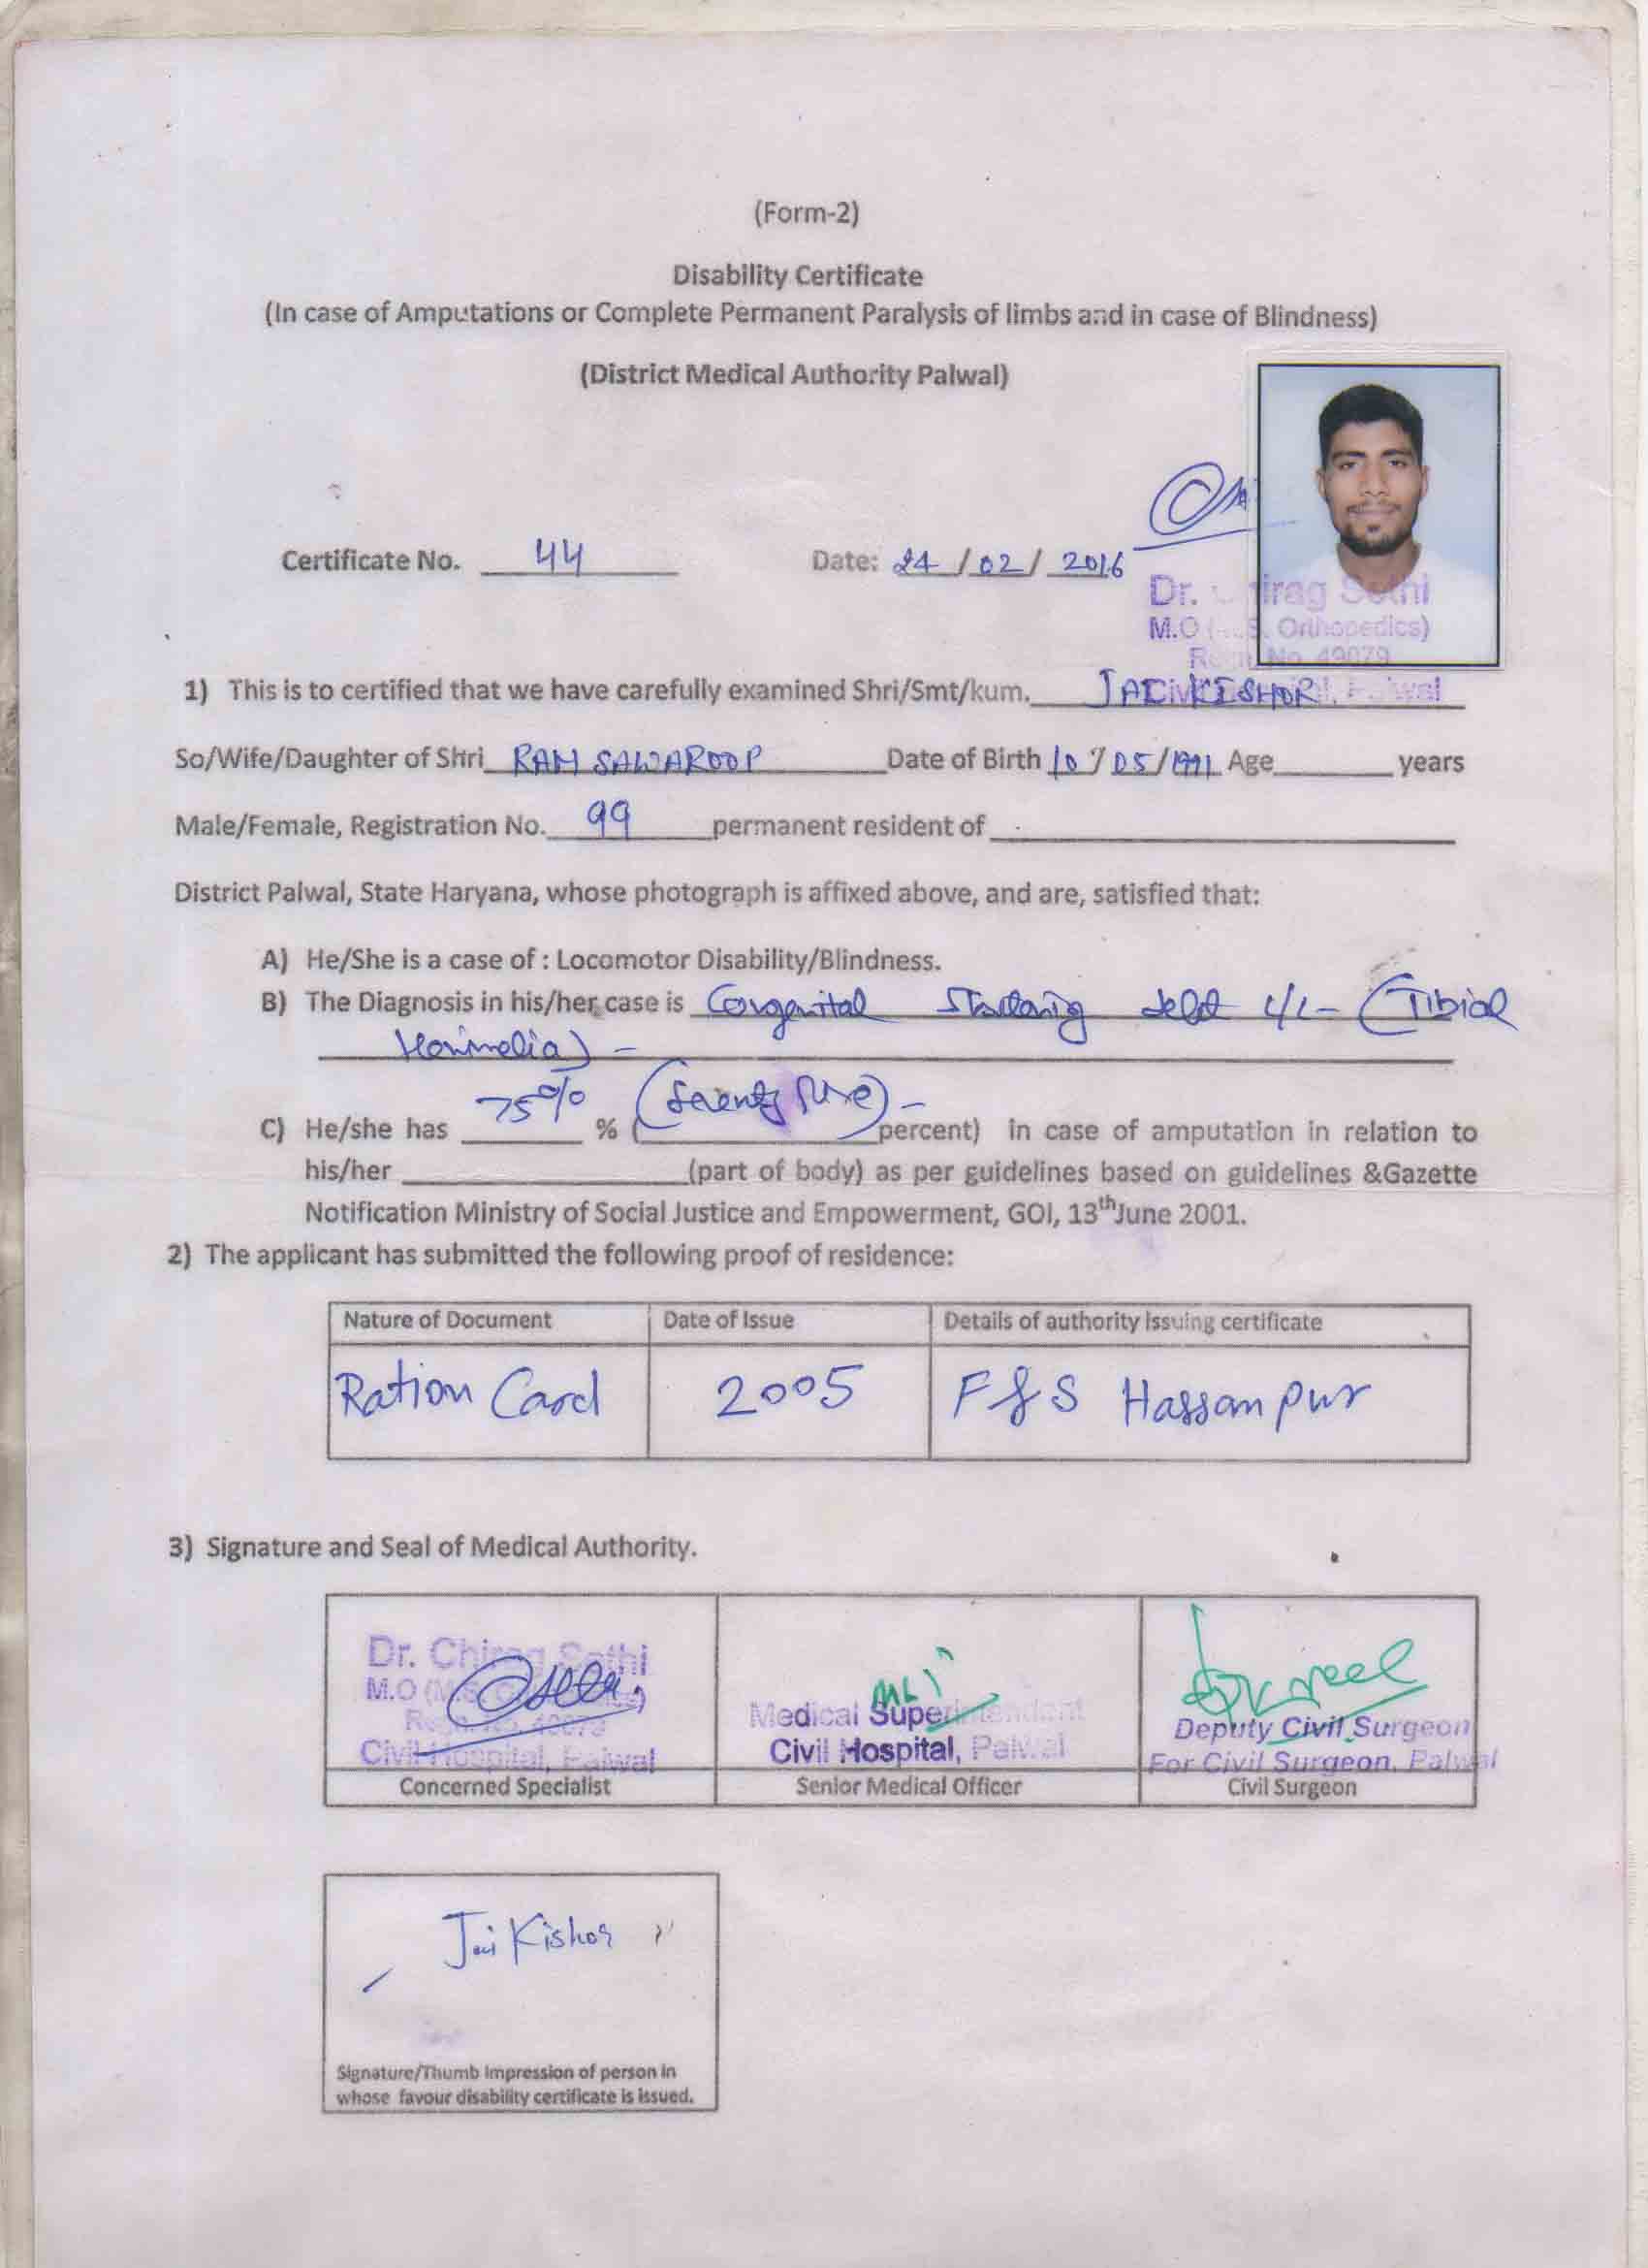 (Form-2)
Disability Certificate
(In case of Amputations or Complete Permanent Paralysis of limbs and in case of Blindness)
(District Medical Authority Palwal)
Certificate No. 44 Date: 24/02/2016
Dr. Chirag Sethi
M.O (M.S. Orthopedics)
Regn. No. 49079
Civil Hospital, Palwal
1) This is to certified that we have carefully examined Shri/Smt/kum. JAI KISHOR
So/Wife/Daughter of Shri RAM SAWAROOP Date of Birth 10/05/1991 Age______ years
Male/Female, Registration No. 99 permanent resident of ______
District Palwal, State Haryana, whose photograph is affixed above, and are, satisfied that:
A) He/She is a case of : Locomotor Disability/Blindness.
B) The Diagnosis in his/her case is Congenital (Tibial
Hemimelia) -
C) He/she has 75% % ( (Seventy five) - percent) in case of amputation in relation to
his/her ______ (part of body) as per guidelines based on guidelines &Gazette
Notification Ministry of Social Justice and Empowerment, GOI, 13th June 2001.
2) The applicant has submitted the following proof of residence:
Nature of Document Date of Issue Details of authority issuing certificate
Ration Card 2005 F&S Hassanpur
3) Signature and Seal of Medical Authority.
Dr. Chirag Sethi
M.O (M.S. Orthopedics)
Regn. No. 49079
Civil Hospital, Palwal
Concerned Specialist
Medical Superintendent
Civil Hospital, Palwal
Senior Medical Officer
Deputy Civil Surgeon
For Civil Surgeon, Palwal
Civil Surgeon
Jai Kishor
Signature/Thumb impression of person in
whose favour disability certificate is issued.